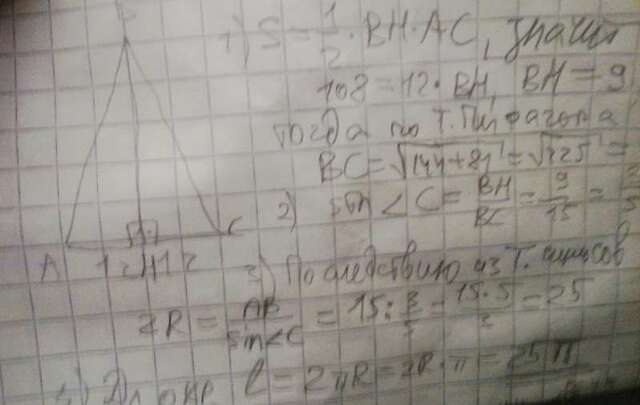 1) S = 1/2 · BH · AC, значит
108 = 12 · BH, BH = 9
тогда по т. Пифагора
BC = √144+81 = √225 =
2) sin < C = BH/BC = 9/15 =
A 12 H 12 C
3) По следствию из т. синусов
2R = AB/sin<C = 15 : 3/5 = 15·5/3 = 25
4) Дл окр. l = 2πR = 2R · π = 25π